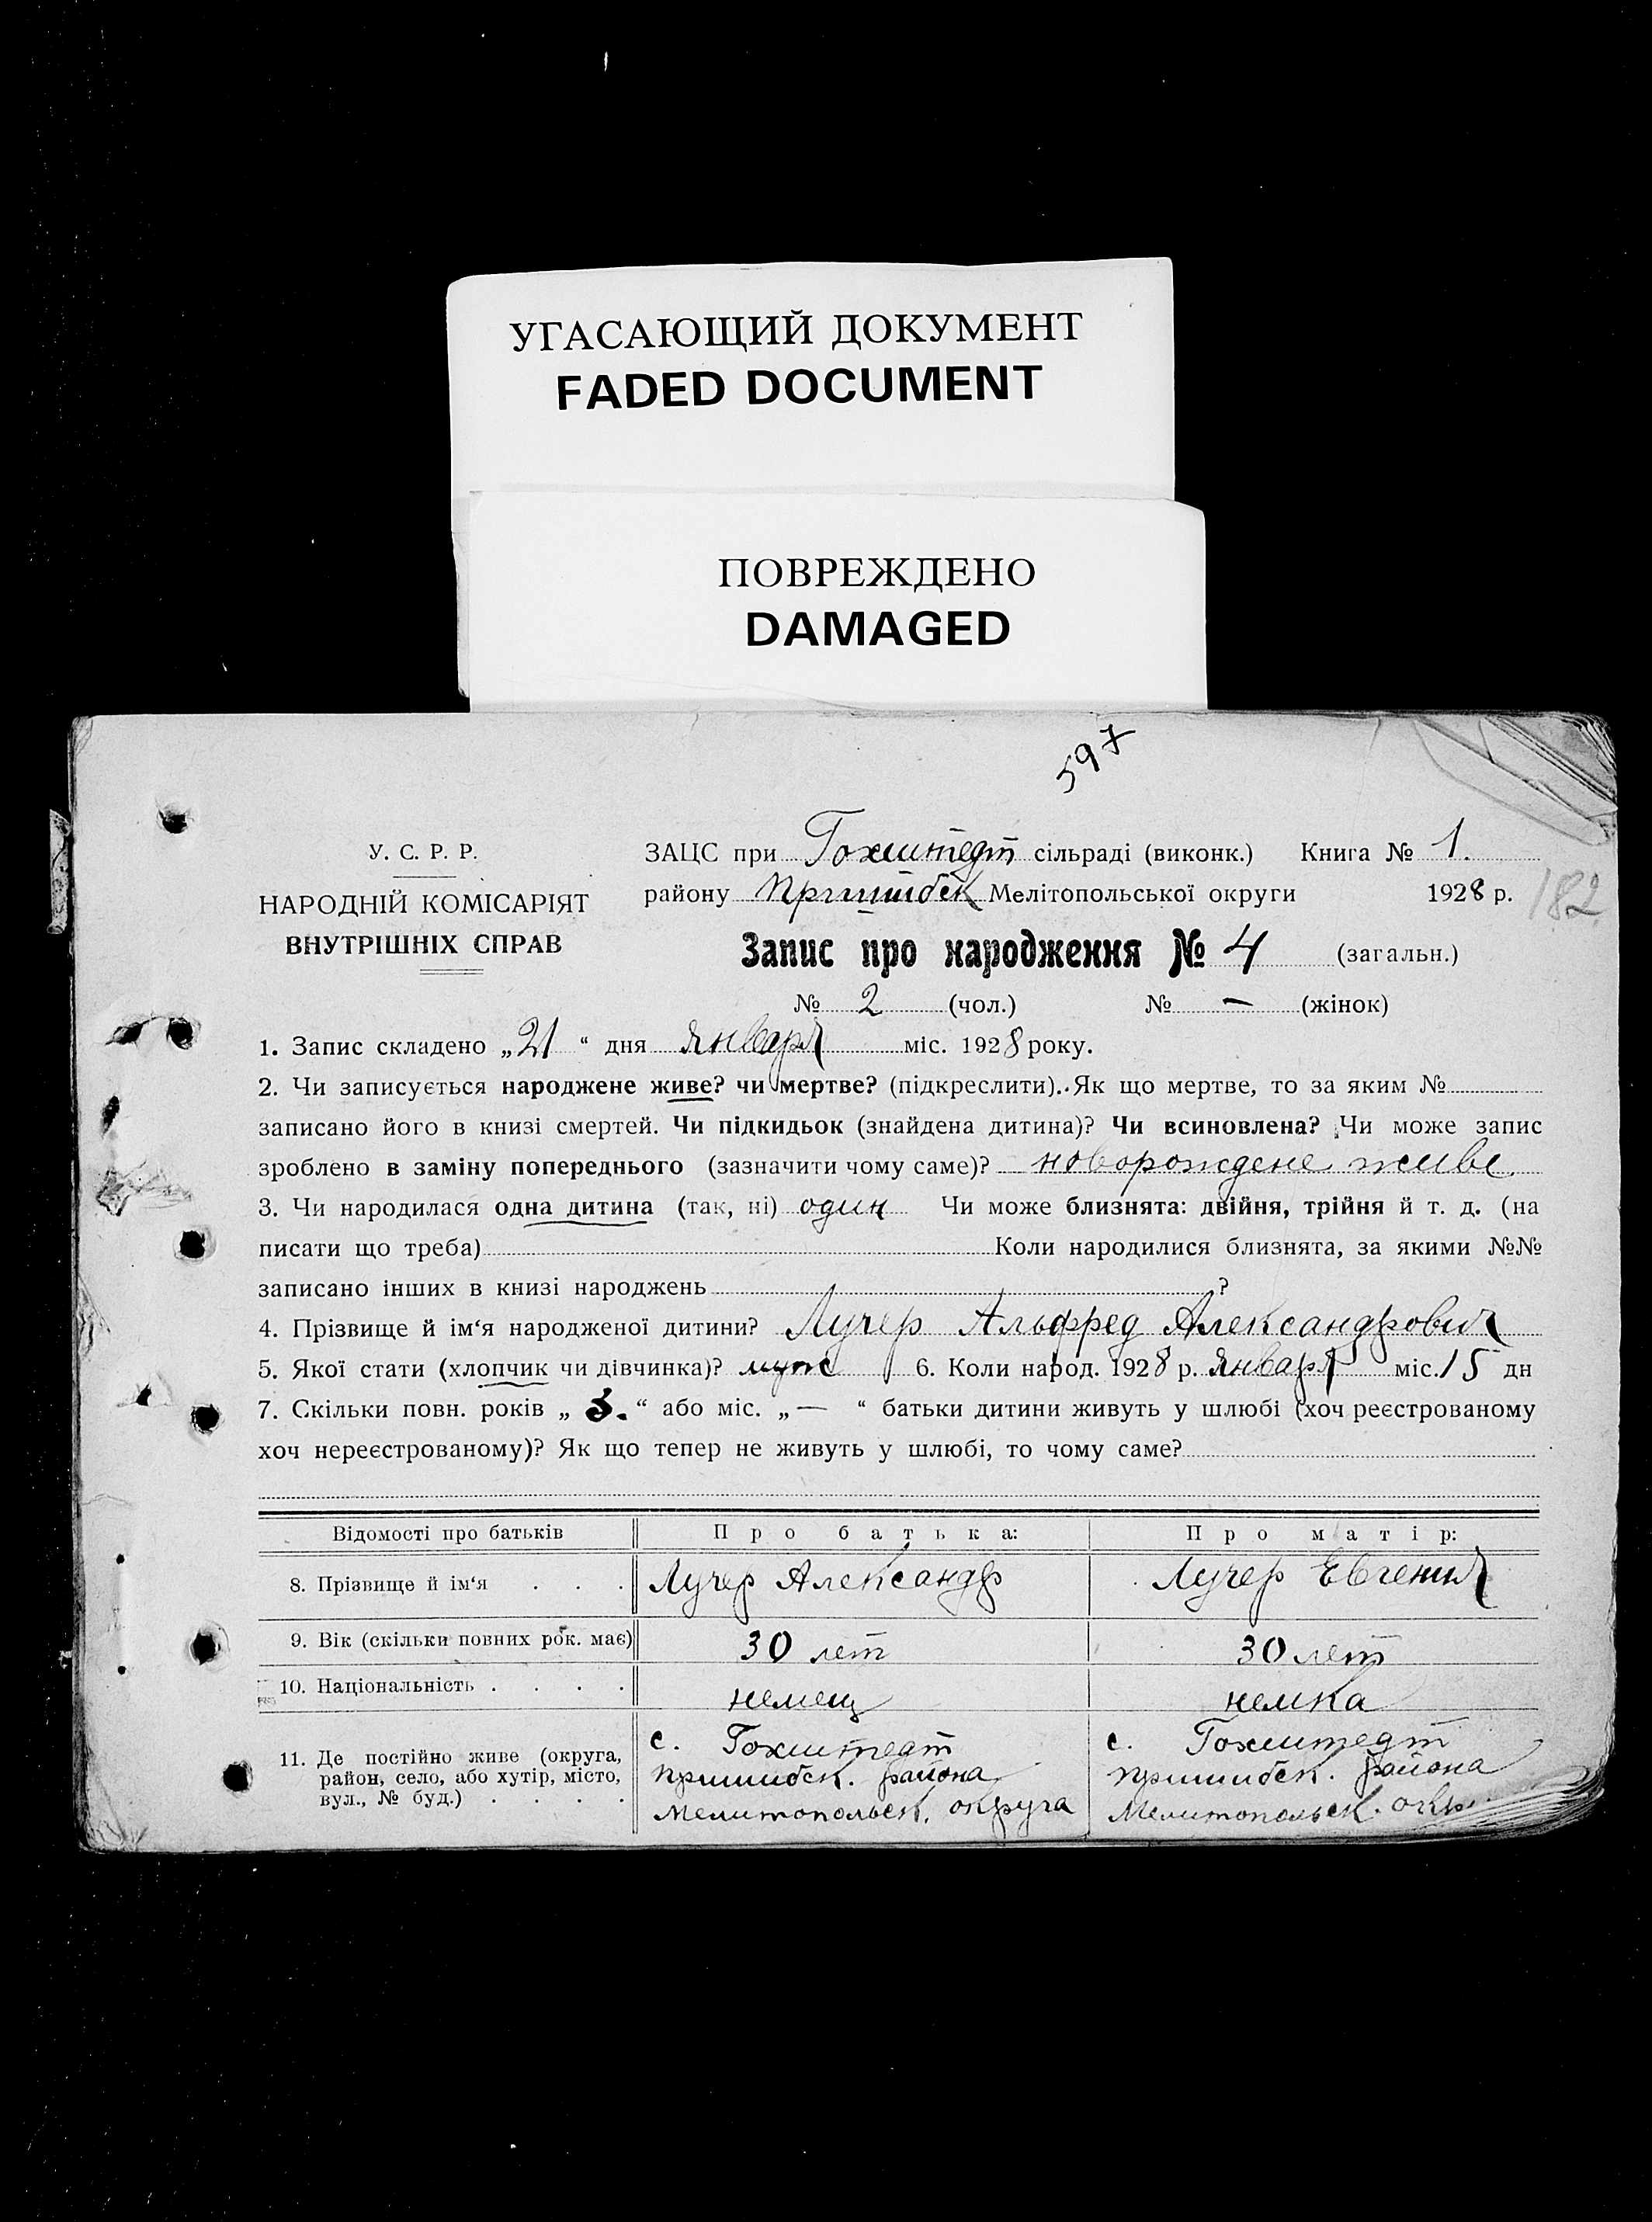 УГАСАЮЩИЙ ДОКУМЕНТ
FADED DOCUMENT
ПОВРЕЖДЕНО
DAMAGED
597
У. С. Р. Р.
НАРОДНІЙ КОМІСАРІЯТ
ВНУТРІШНІХ СПРАВ
ЗАЦС при Гохштедт сільраді (виконк.) Книга № 1.
району Пришибск Мелітопольської округи 1928 р.
182
Запис про народження № 4 (загальн.)
№ 2 (чол.) № — (жінок)
1. Запис складено „21“ дня января міс. 1928 року.
2. Чи записується народжене живе? чи мертве? (підкреслити). Як що мертве, то за яким №
записано його в книзі смертей. Чи підкидьок (знайдена дитина)? Чи всиновлена? Чи може запис
зроблено в заміну попереднього (зазначити чому саме)? новорождене живе
3. Чи народилася одна дитина (так, ні) один Чи може близнята: двійня, трійня й т. д. (на
писати що треба) Коли народилися близнята, за якими №№
записано інших в книзі народжень ?
4. Прізвище й ім‘я народженої дитини? Лучер Альфред Александрович
5. Якої стати (хлопчик чи дівчинка)? муж 6. Коли народ. 1928 р. января міс. 15 дн
7. Скільки повн. років „ 3. “ або міс. „ — “ батьки дитини живуть у шлюбі (хоч реєстрованому
хоч нереєстрованому)? Як що тепер не живуть у шлюбі, то чому саме?
Відомості про батьків Про батька: Про матір:
8. Прізвище й ім‘я . . . Лучер Александр Лучер Евгения
9. Вік (скільки повних рок. має) 30 лет 30 лет
10. Національність . . . . немец немка
11. Де постійно живе (округа,
район, село, або хутір, місто,
вул., № буд.) . . . .
с. Гохштедт
Пришибск. района
Мелитопольск. округа
с. Гохштедт
Пришибск. района
Мелитопольск. окр.